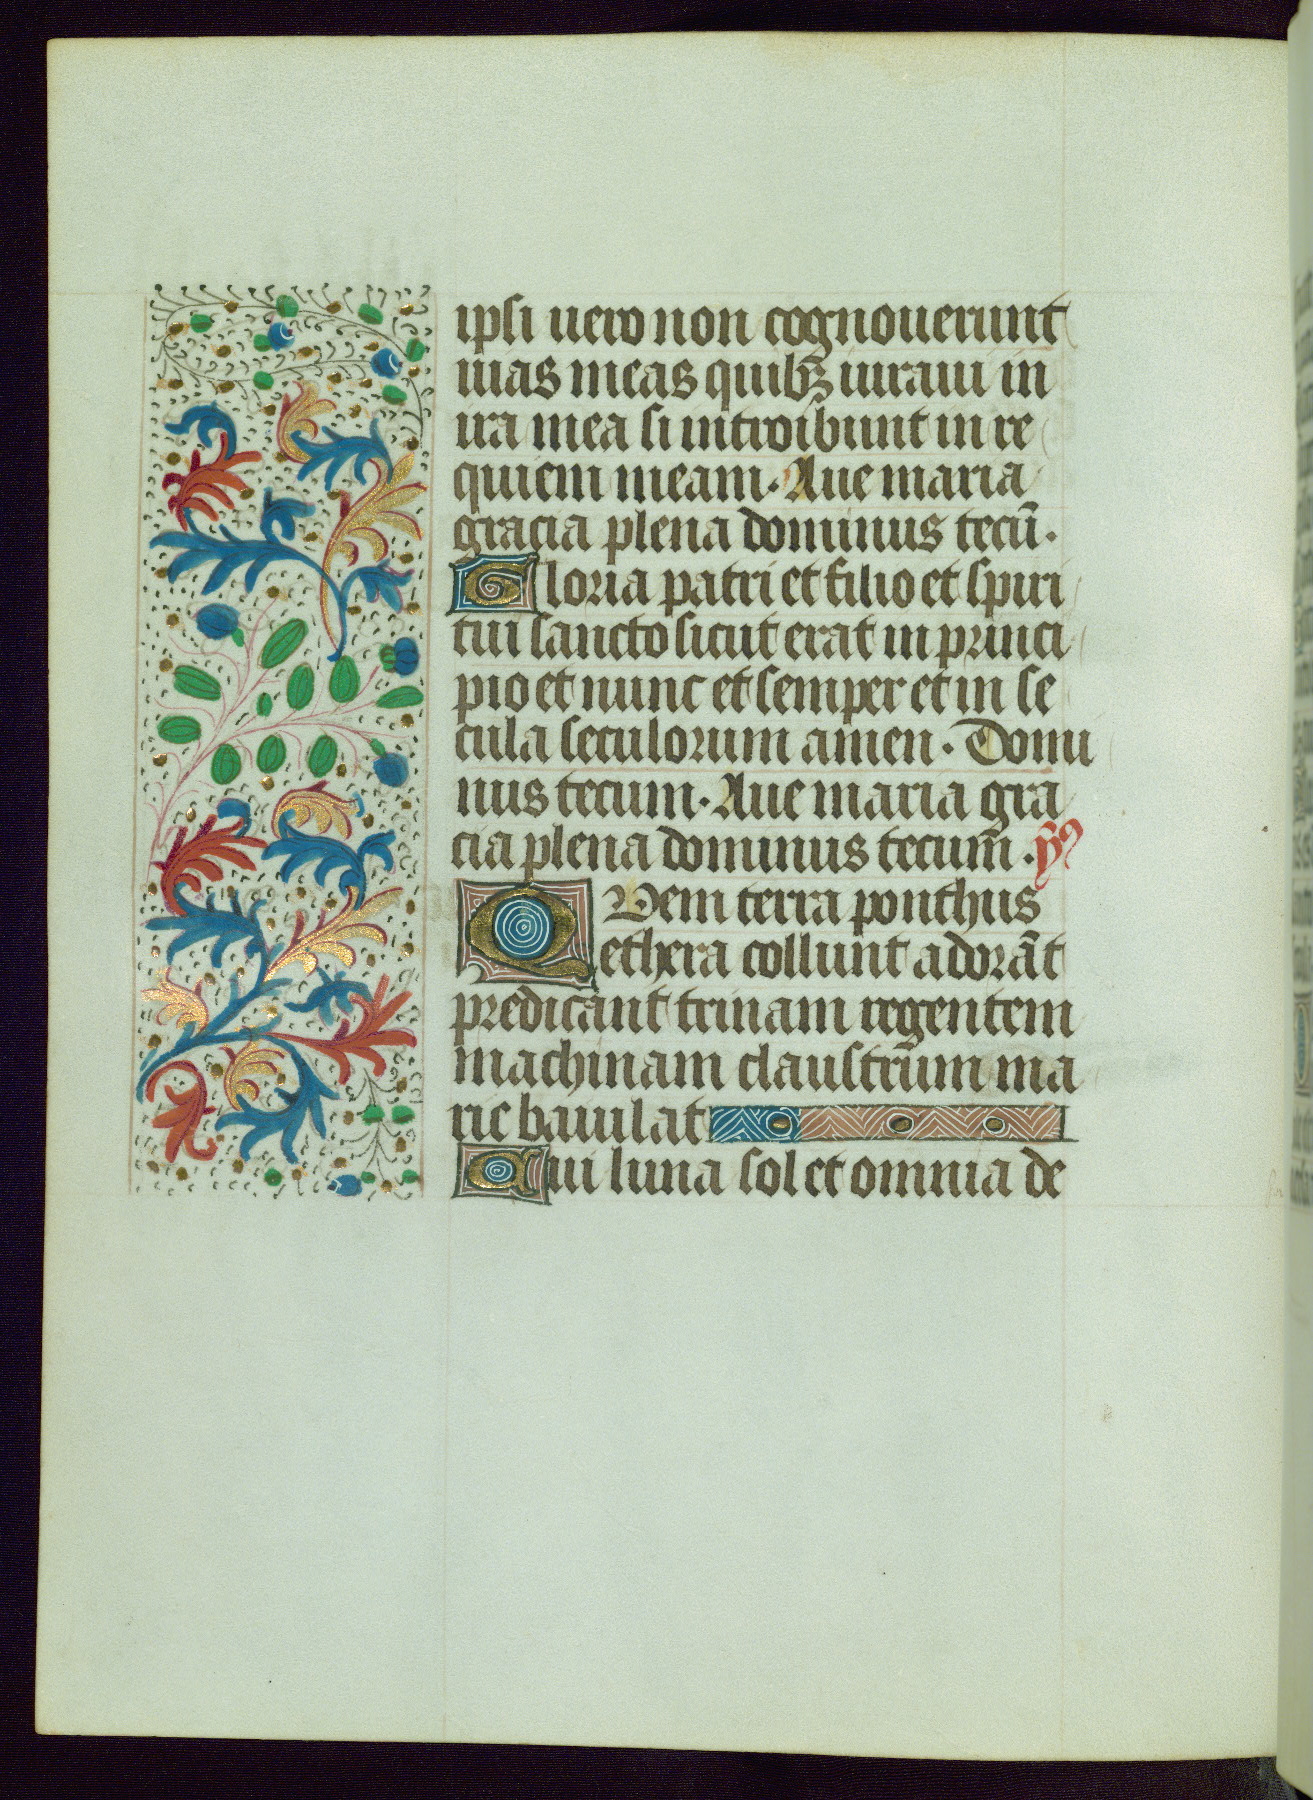 ipsi uero non cognouerunt
uias meas quibꝫ iuraui in
ira mea si introibunt in re
quiem meam. Aue maria
gracia plena dominus tecū.
Gloria patri et filio et spiri
tui sancto sicut erat in princi
pio et nunc et semper et in se
cula seculorum amen. Domi
nus tecum. Aue maria gra
cia plena dominus tecum̄. yꝰ
QVem terra ponthus
ethera collunt adorāt
predicant trinam regentem
machinam claustrūm ma
rie baiulat
Cui luna sol et omnia de